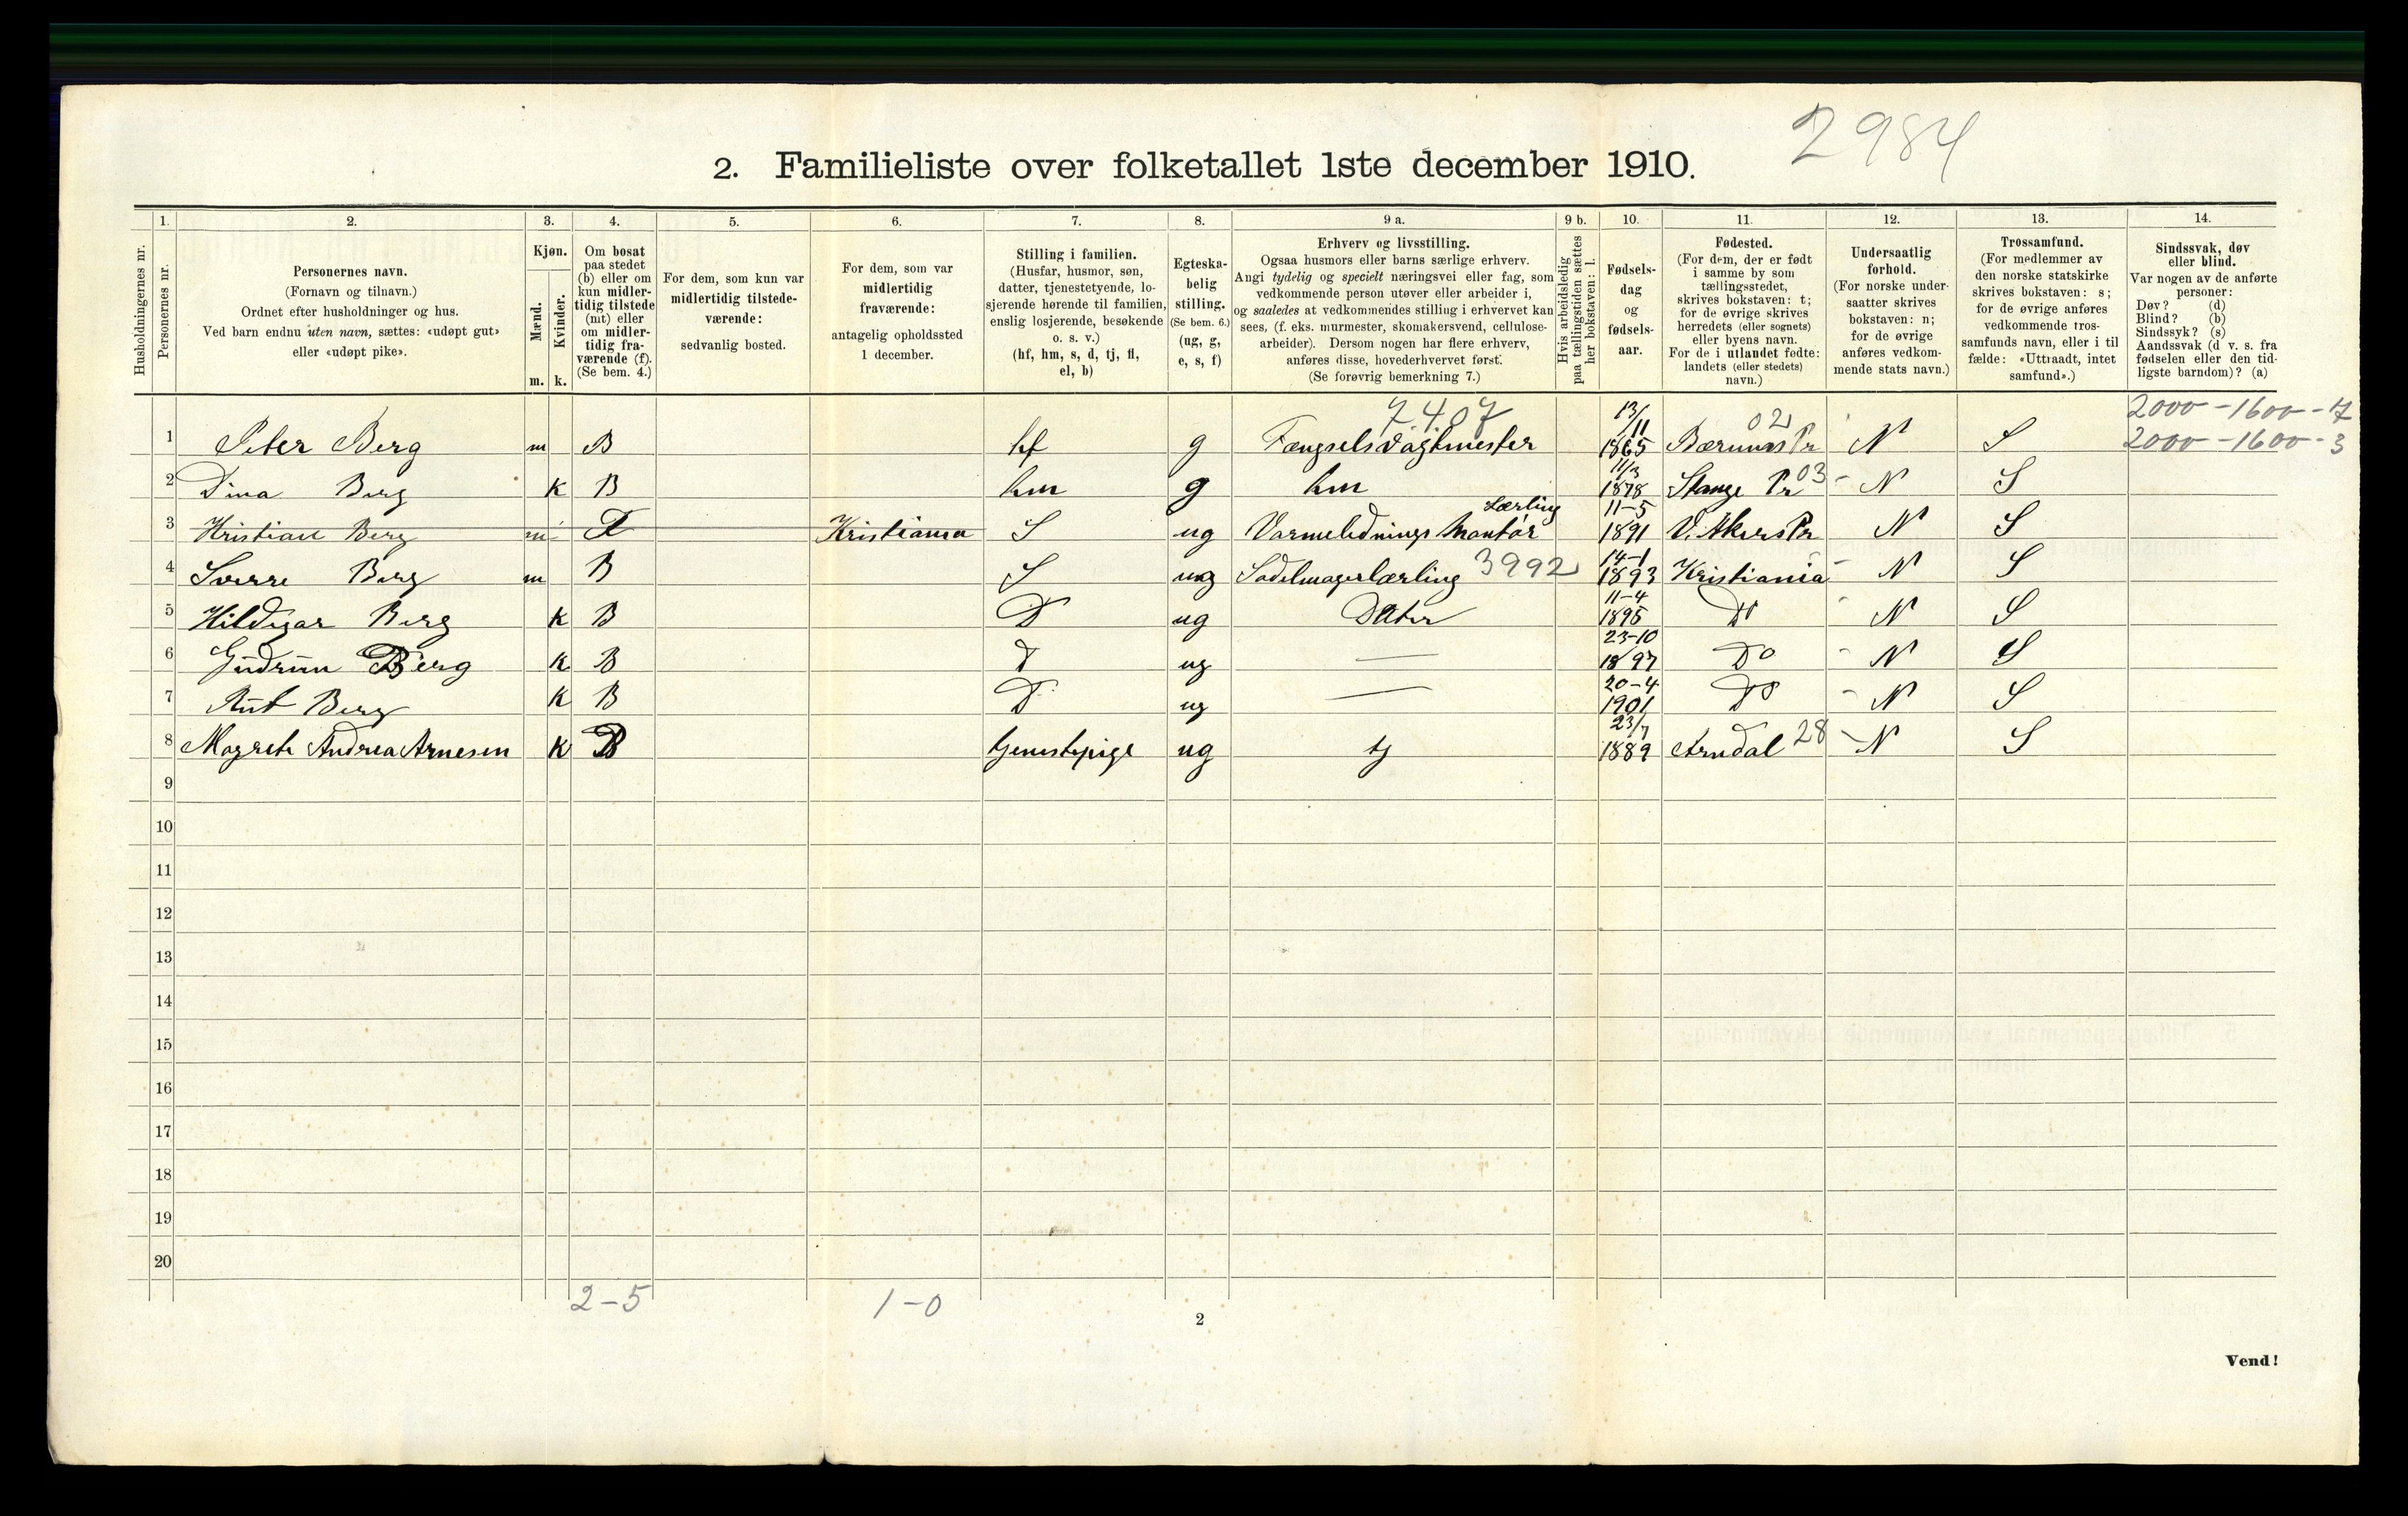 2984
2. Familieliste over folketallet 1ste december 1910.
Husholdningernes nr.
1.
Personernes nr.
2.
Personernes navn.
(Fornavn og tilnavn.)
Ordnet efter husholdninger og hus.
Ved barn endnu uten navn, sættes: «udøpt gut»
eller «udøpt pike».
3.
Kjøn.
Mænd.
Kvinder.
m. k.
4.
Om bosat
paa stedet
(b) eller om
kun midler-
tidig tilstede
(mt) eller
om midler-
tidig fra-
værende (f).
(Se bem. 4.)
5.
For dem, som kun var
midlertidig tilstede-
værende:
sedvanlig bosted.
6.
For dem, som var
midlertidig
fraværende:
antagelig opholdssted
1 december.
7.
Stilling i familien.
(Husfar, husmor, søn,
datter, tjenestetyende, lo-
sjerende hørende til familien,
enslig losjerende, besøkende
o. s. v.)
(hf, hm, s, d, tj, fl,
el, b)
8.
Egteska-
belig
stilling.
(Se bem. 6.)
(ug, g,
e, s, f)
9 a.
Erhverv og livsstilling.
Ogsaa husmors eller barns særlige erhverv.
Angi tydelig og specielt næringsvei eller fag, som
vedkommende person utøver eller arbeider i,
og saaledes at vedkommendes stilling i erhvervet kan
sees, (f. eks. murmester, skomakersvend, cellulose-
arbeider). Dersom nogen har flere erhverv,
anføres disse, hovederhvervet først.
(Se forøvrig bemerkning 7.)
9 b.
Hvis arbeidsledig
paa tællingstiden sættes
her bokstaven: l.
10.
Fødsels-
dag
og
fødsels-
aar.
11.
Fødested.
(For dem, der er født
i samme by som
tællingsstedet,
skrives bokstaven: t;
for de øvrige skrives
herredets (eller sognets)
eller byens navn.
For de i utlandet fødte:
landets (eller stedets)
navn.)
12.
Undersaatlig
forhold.
(For norske under-
saatter skrives
bokstaven: n;
for de øvrige
anføres vedkom-
mende stats navn.)
13.
Trossamfund.
(For medlemmer av
den norske statskirke
skrives bokstaven: s;
for de øvrige anføres
vedkommende tros-
samfunds navn, eller i til
fælde: «Uttraadt, intet
samfund».)
14.
Sindssvak, døv
eller blind.
Var nogen av de anførte
personer:
Døv? (d)
Blind? (b)
Sindssyk? (s)
Aandssvak (d. v. s. fra
fødselen eller den tid-
ligste barndom)? (a)
7.4.07 13/11 02 2000-1600-17
1 Peter Berg m B hf g Fængselsvagtmester 1865 Bærums Pr N S 2000-1600-3
11/3 03
2 Dina Berg K B hm g hm 1878 Stange Pr N S
Lærling 11-5
3 Kristian Berg m F Kristiania S ug Varmelednings Montør 1891 V. Akers Pr N S
14-1
4 Sverre Berg m B S ug Sadelmagerlærling 3992 1893 Kristiania N S
11-4
5 Hildegar Berg K B D ug Datter 1895 Do N S
23-10
6 Gudrun Berg K B d ug — 1897 Do N S
20-4
7 Rut Berg K B D ug — 1901 Do N S
23/7
8 Magrete Andrea Arnesen K B tjenestepige ug tj 1889 Arndal 28 N S
9
10
11
12
13
14
15
16
17
18
19
20
2-5 1-0
2
Vend!